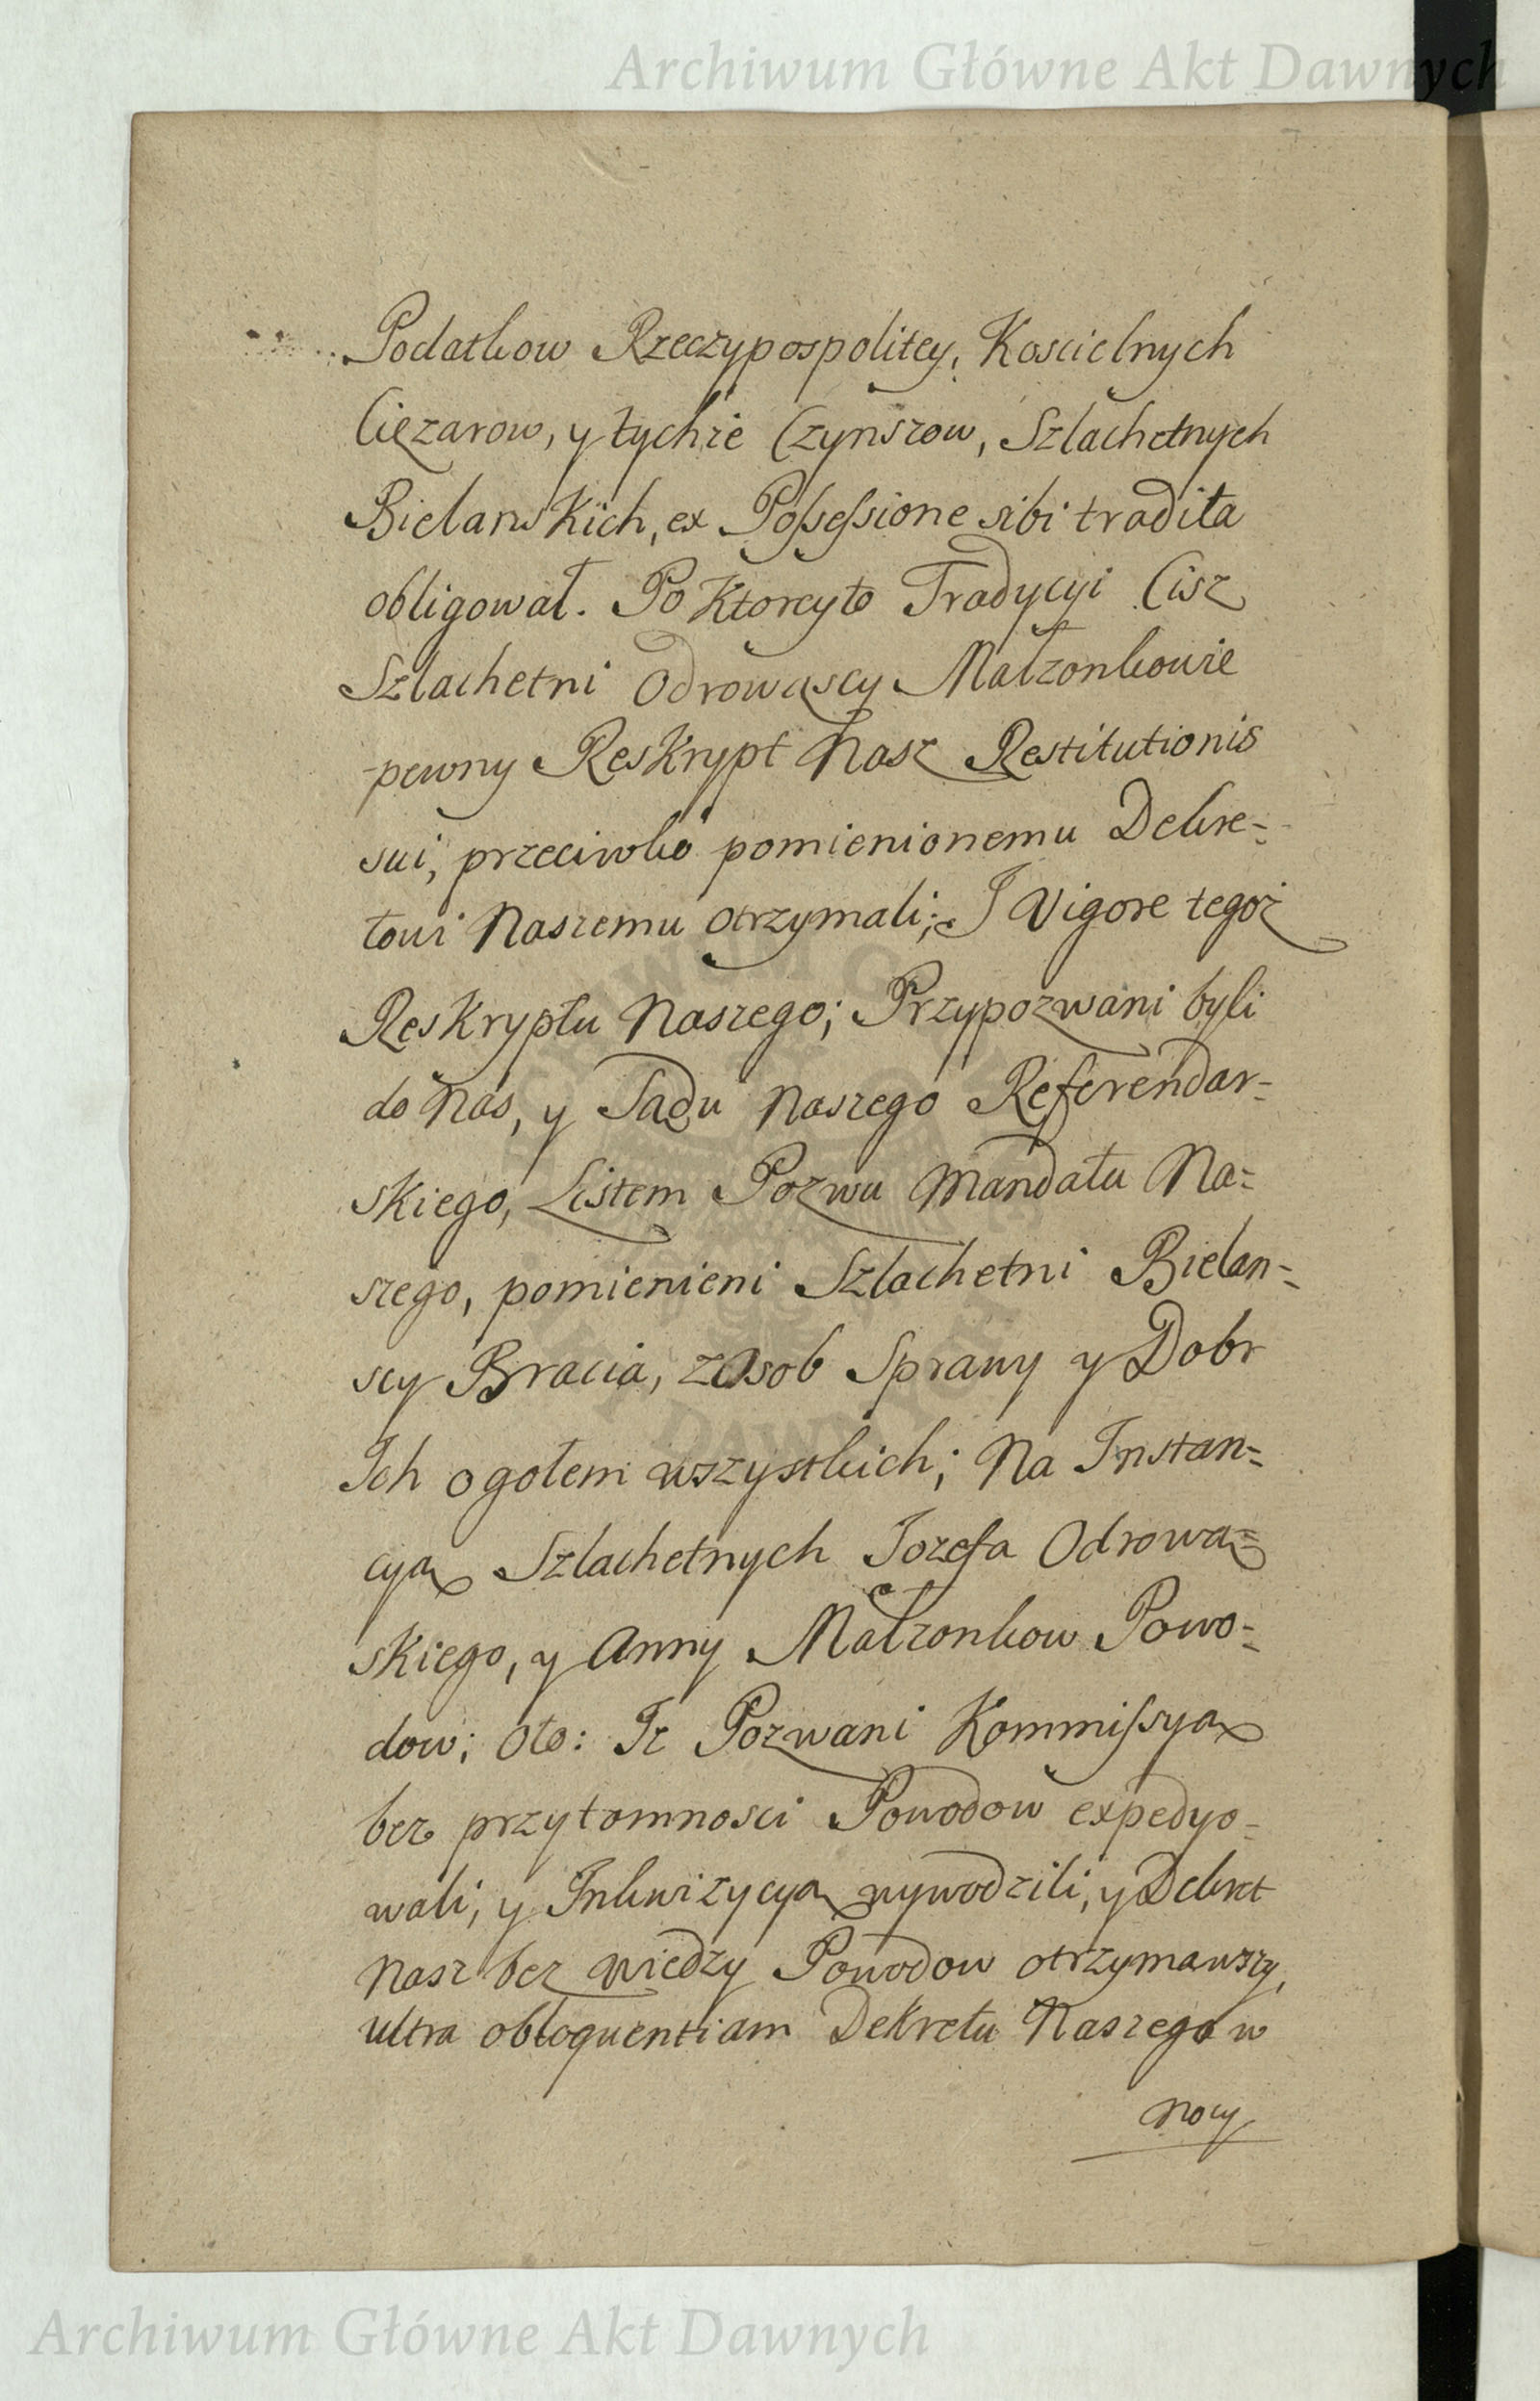 Archiwum Główne Akt Dawnych
Podatkow Rzeczypospolitey, Koscielnych
Cięzarow, y tychże Czynszow, Szlachetnych
Bielanskich, ex Possessione sibi tradita
obligował. Po Ktoreyto Tradycyi Cisz
Szlachetni Odrowąscy Małzonkowie
pewny Reskrypt Nasz Restitutionis
sui, przeciwko pomienionemu Dekre=
towi Naszemu otrzymali; I Vigore tegoż
Reskryptu Naszego; Przypozwani byli
do Nas, y Sądu Naszego Referendar=
skiego, Listem Pozwu Mandatu Na=
szego, pomienieni Szlachetni Bielan=
scy Bracia, z Osob Sprawy y Dobr
Ich ogołem wszystkich; Na Instan=
cyą Szlachetnych Jozefa Odrową=
skiego, y Anny Małzonkow Powo=
dow; oto: Iż Pozwani Kommissyą
bez przytomnosci Powodow expedyo=
wali, y Inkwizycyą wywodzili, y Dekret
Nasz bez wiedzy Powodow otrzymawszy,
ultra obloquentiam Dekretu Naszego w
nocy
ARCHIWUM GŁÓWNE AKT DAWNYCH
Archiwum Główne Akt Dawnych